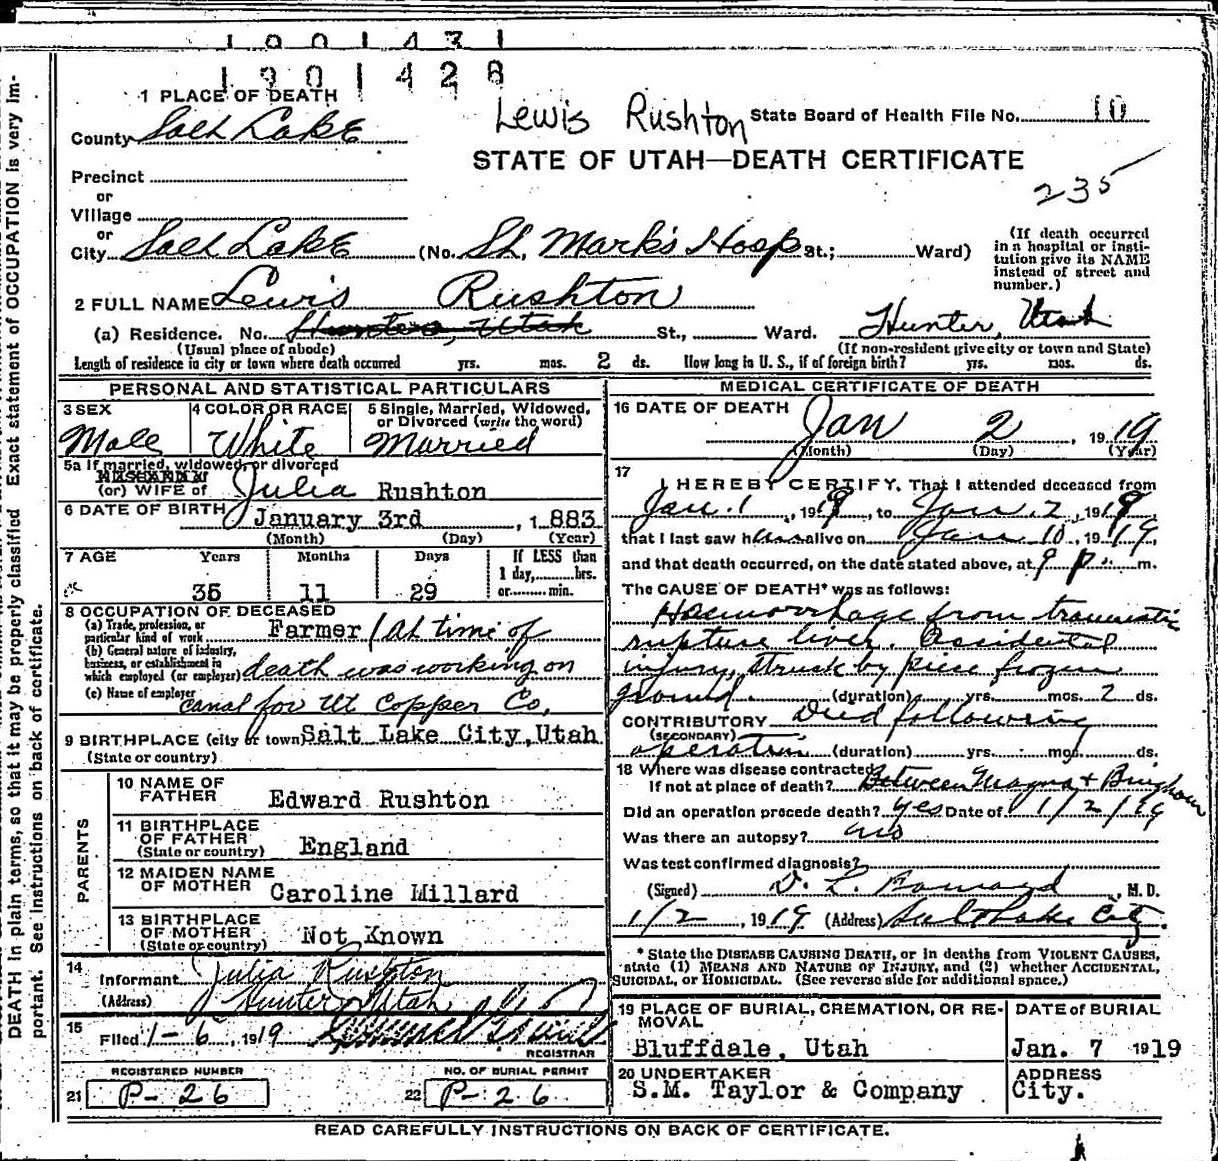 1901431
1901428
1 PLACE OF DEATH
Lewis Rushton
State Board of Health File No. 10
County Salt Lake
STATE OF UTAH—DEATH CERTIFICATE
235
Precinct
or
Village
or
City Salt Lake (No. St. Mark's Hosp St.; Ward)
(If death occurred
in a hospital or insti-
tution give its NAME
instead of street and
number.)
2 FULL NAME Lewis Rushton
(a) Residence. No. Hunters, Utah St., Ward. Hunter, Utah
(Usual place of abode) (If non-resident give city or town and State)
Length of residence in city or town where death occurred yrs. mos. 2 ds. How long in U. S., if of foreign birth? yrs. mos. ds.
PERSONAL AND STATISTICAL PARTICULARS
3 SEX 4 COLOR OR RACE 5 Single, Married, Widowed,
or Divorced (write the word)
Male White Married
5a If married, widowed, or divorced
HUSBAND of
(or) WIFE of Julia Rushton
6 DATE OF BIRTH January 3rd, 1883
(Month) (Day) (Year)
7 AGE Years Months Days If LESS than
1 day, hrs.
or min.
35 11 29
8 OCCUPATION OF DECEASED
(a) Trade, profession, or
particular kind of work Farmer / At time of
(b) General nature of industry,
business, or establishment in
which employed (or employer) death was working on
(c) Name of employer canal for Ut Copper Co.
9 BIRTHPLACE (city or town) Salt Lake City, Utah
(State or country)
PARENTS
10 NAME OF
FATHER Edward Rushton
11 BIRTHPLACE
OF FATHER
(State or country) England
12 MAIDEN NAME
OF MOTHER Caroline Millard
13 BIRTHPLACE
OF MOTHER
(State or country) Not Known
14
Informant Julia Rushton
(Address) Hunter Utah
15
Filed 1-6, 1919
REGISTRAR
REGISTERED NUMBER NO. OF BURIAL PERMIT
21 P-26 22 P-26
MEDICAL CERTIFICATE OF DEATH
16 DATE OF DEATH Jan 2, 1919
(Month) (Day) (Year)
17
I HEREBY CERTIFY, That I attended deceased from
Jan. 1, 1919, to Jan. 2, 1919,
that I last saw him alive on Jan 10, 1919,
and that death occurred, on the date stated above, at 9 p. m.
The CAUSE OF DEATH* was as follows:
Haemorrhage from traumatic
rupture liver. Accidental
injury, struck by piece frozen
ground. (duration) yrs. mos. 2 ds.
CONTRIBUTORY Died following
(SECONDARY)
operation (duration) yrs. mos. ds.
18 Where was disease contracted
If not at place of death? Between Magna & Bingham
Did an operation precede death? yes Date of 1/2/19
Was there an autopsy? no
Was test confirmed diagnosis?
(Signed) D. L., M. D.
1/2, 1919 (Address) Salt Lake City.
* State the DISEASE CAUSING DEATH, or in deaths from VIOLENT CAUSES,
state (1) MEANS AND NATURE OF INJURY, and (2) whether ACCIDENTAL,
SUICIDAL, or HOMICIDAL. (See reverse side for additional space.)
19 PLACE OF BURIAL, CREMATION, OR RE-
MOVAL
DATE of BURIAL
Bluffdale, Utah Jan. 7 1919
20 UNDERTAKER ADDRESS
S.M. Taylor & Company City.
READ CAREFULLY INSTRUCTIONS ON BACK OF CERTIFICATE.
DEATH in plain terms, so that it may be properly classified. Exact statement of OCCUPATION is very im-
portant. See instructions on back of certificate.